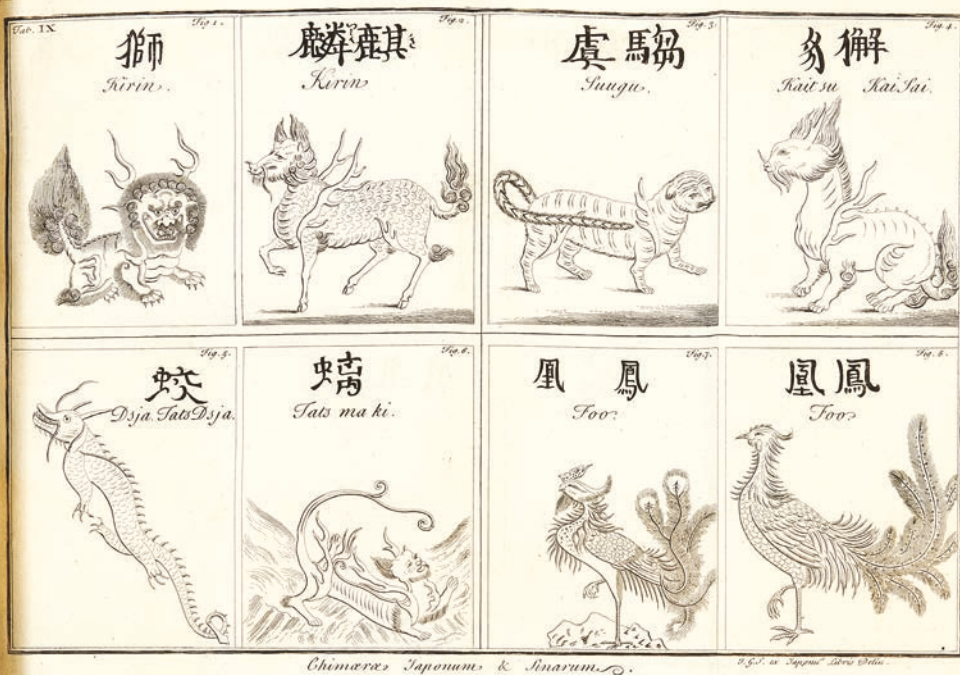 Tab. IX
Fig. 1.
獅
Kirin.
Fig. 2.
麒麟
Kirin
Fig. 3.
騶虞
Suugu.
Fig. 4.
獬豸
Kaitsu Kai Sai.
Fig. 5.
蛟
Dsja. Tats Dsja.
Fig. 6.
螭
Tats ma ki.
Fig. 7.
鳳凰
Foo?
Fig. 8.
鳳凰
Foo?
Chimæræ Japonum & Sinarum.
ex Libris Delin.